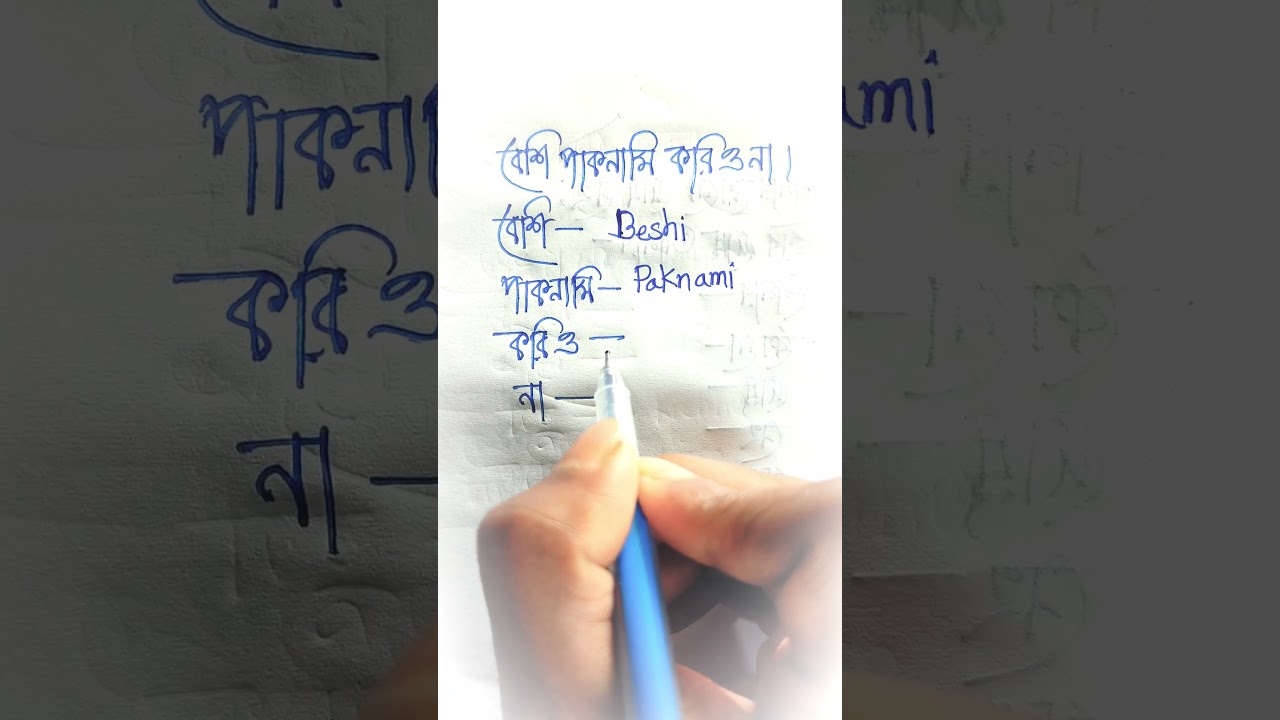 বেশি পাকনামি করিও না।
বেশি — Beshi
পাকনামি — Paknami
করিও —
না —